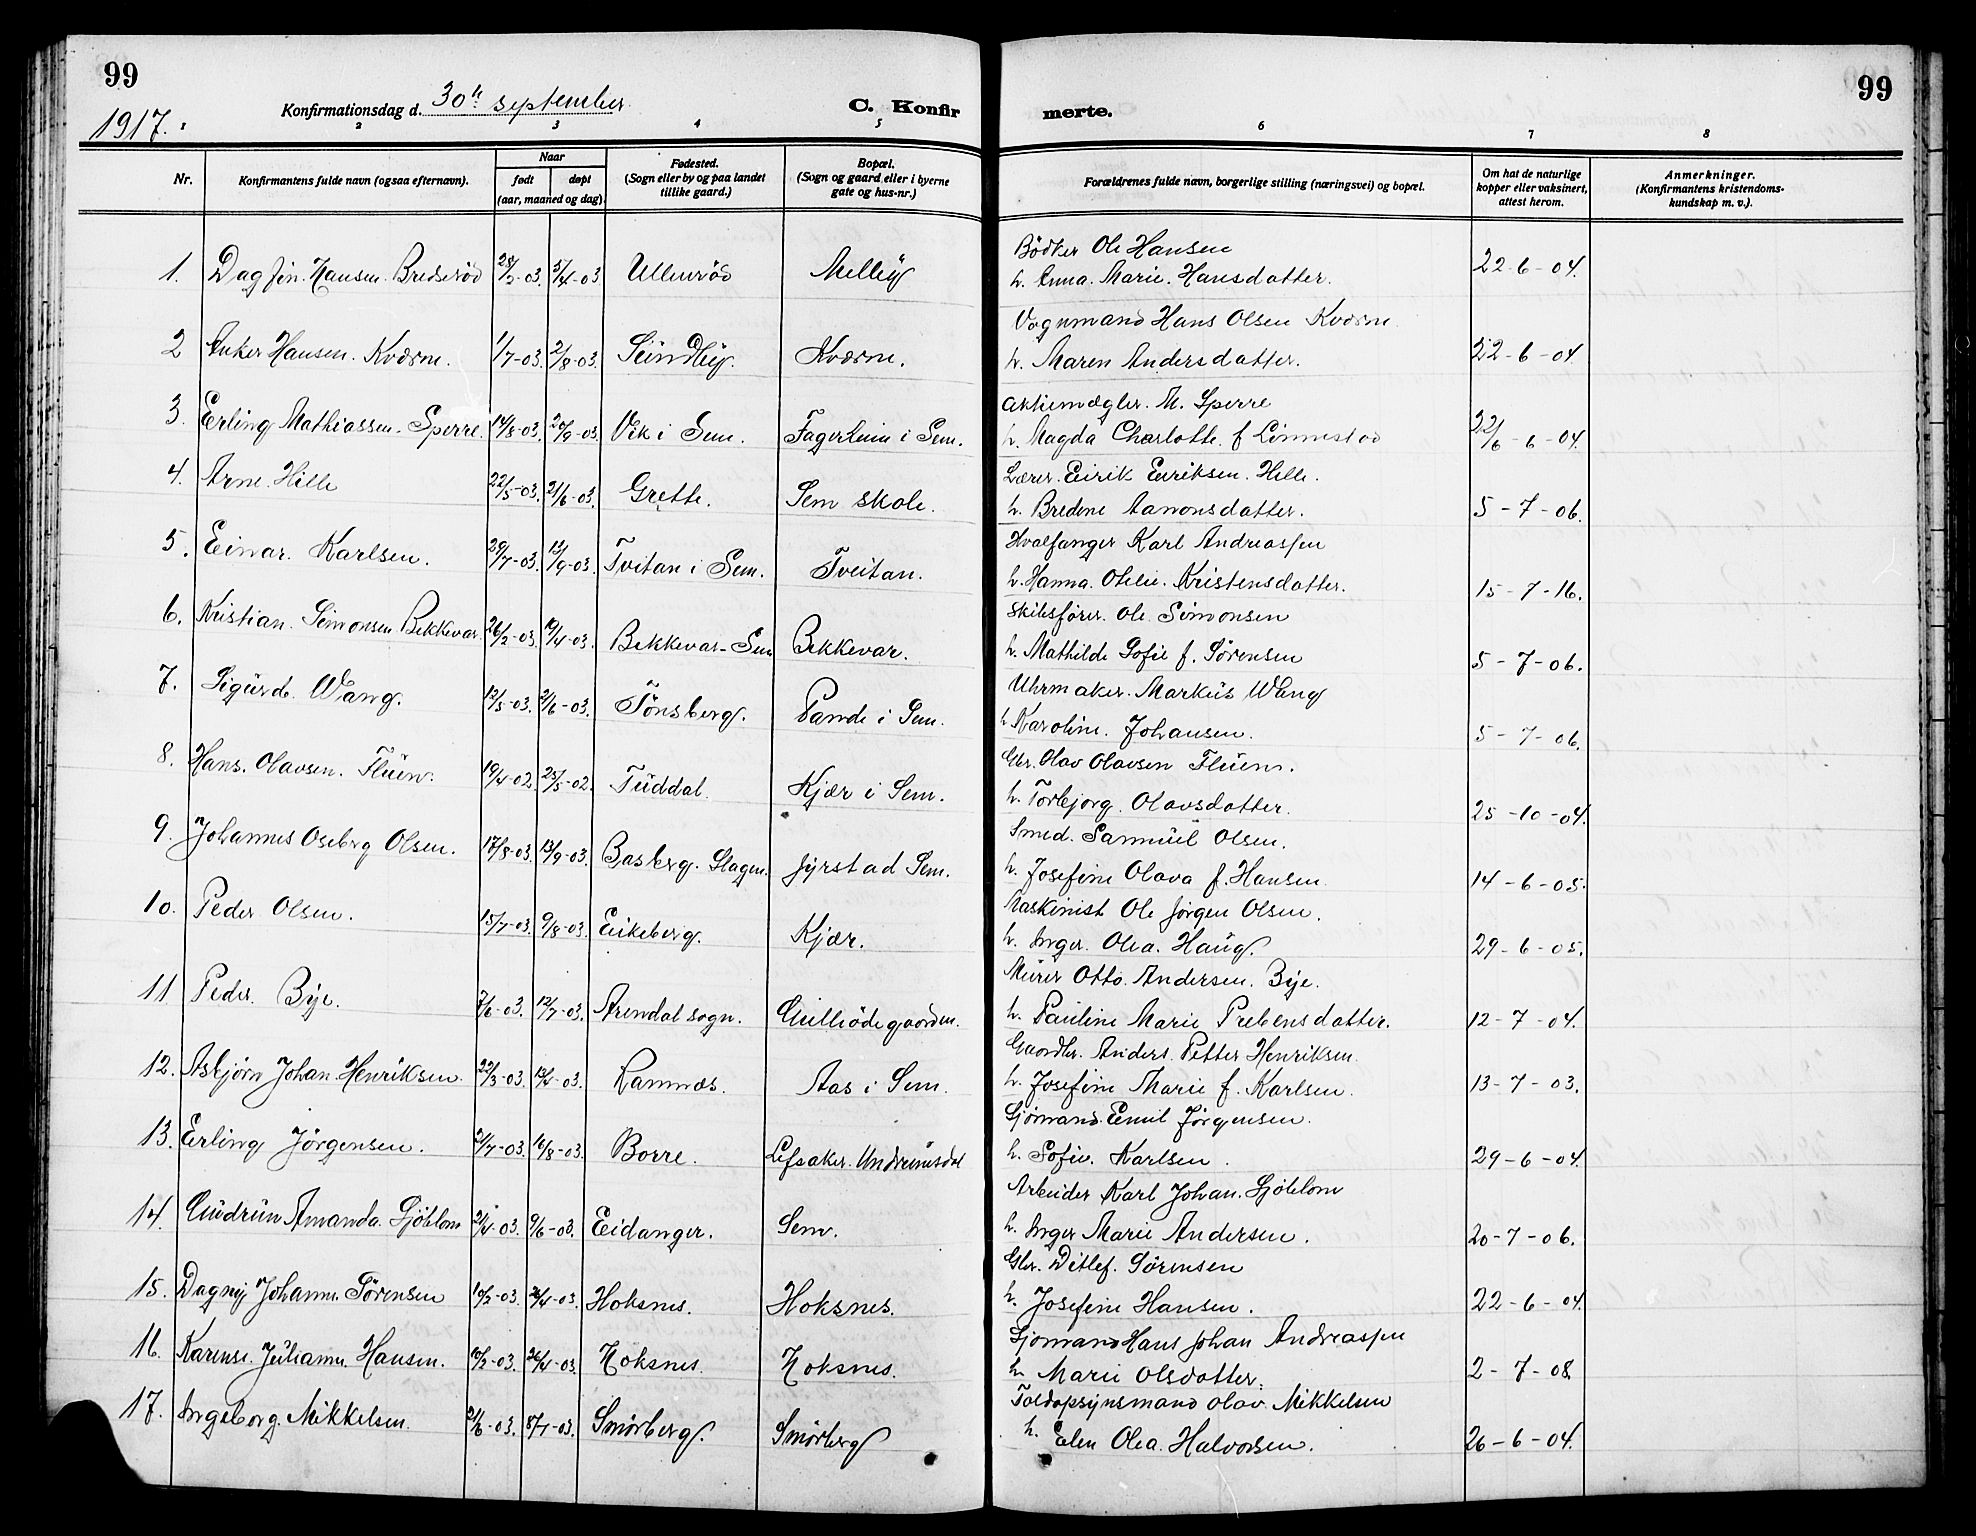 99
1917.
Konfirmationsdag d. 30te september
C. Konfir
merte.
99
1 2 3 4 5 6 7 8
Nr.
Konfirmantens fulde navn (ogsaa efternavn).
Naar
født døpt
(aar, maaned og dag)
Fødested.
(Sogn eller by og paa landet
tillike gaard.)
Bopæl.
(Sogn og gaard eller i byerne
gate og hus-nr.)
Forældrenes fulde navn, borgerlige stilling (næringsvei) og bopæl.
Om hat de naturlige
kopper eller vaksinert,
attest herom.
Anmerkninger.
(Konfirmantens kristendoms-
kundskap m. v.).
Bödker Ole Hansen
1. Dagfin. Hansen. Brederöd 28/2-03. 5/4-03 Ullenröd Melley h. Anna. Marie. Hansdatter. 22-6-04.
Vognmand Hans Olsen Kværne
2 Anker Hansen. Kværne. 1/7-03. 2/8-03. Kværne. h. Maren Andersdatter. 22-6-04
Aktiemægler. M. Sperre
3. Erling Mathiassen. Sperre. 14/8-03. 20/9-03. Vik i Sem. Fagerheim i Sem. h. Magda Charlotte. f Lönnestad 22/6-6-04.
Lærer. Eirik Eiriksen. Hille.
4. Arne. Hille 22/5-03. 21/6-03. Grette. Sem skole. h. Bredine Aanonsdatter. 5-7-06.
Hvalfanger Karl Andreassen
5. Einar. Karlsen. 29/7-03. 13/9-03. Tvitan i Sem. Tveitan. h. Hanna. Otilie. Kristensdatter. 15-7-16.
Skibsfører. Ole Simonsen
6. Kristian. Simonsen Bekkevar. 26/2-03. 19/4-03. Bekkevar-Sem Bekkevar. h. Mathilde Sofie f. Sörensen 5-7-06.
Uhrmaker. Markus Wang
7. Sigurd. Wang. 12/5-03. 21/6-03. Tönsberg. Pande i Sem. h Karoline. Johansen. 5-7-06.
Gbr. Olav Olavsen Fluen.
8. Hans. Olavsen. Fluen. 19/4-02. 25/5-02. Tuddal. Kjær i Sem. h. Torbjorg. Olavsdatter. 25-10-04.
Smed. Samuel Olsen.
9. Johannes Oseberg Olsen. 17/8-03. 13/9-03. Basberg. Slagen. Jyrstad Sem. h. Josefine Olava f. Hansen. 14-6-05.
Maskinist Ole Jörgen Olsen.
10. Peder Olsen. 15/7-03. 9/8-03. Eikeberg. Kjær. h. Inger. Olea. Haug. 29-6-05.
Murer Otto. Andersen. Bye.
11 Peder. Bye. 7/6-03. 12/7-03. Arendal sogn. Gullrödegaarden. h. Pauline Marie Prebensdatter. 12-7-04.
Gaardbr. Anders. Petter Henriksen.
12. Asbjörn Johan Henriksen. 22/3-03. 13/4-03. Ramnæs. Aas i Sem. h. Josefine Marie f. Karlsen. 13-7-03.
Sjömand. Emil Jörgensen.
13. Erling Jörgensen. 21/7-03. 16/8-03. Borre. Lefsaker. Undrumsdal h. Sofie. Karlsen. 29-6-04.
Arbeider Karl Johan. Sjöblom
14. Gudrun Amanda Sjöblom 21/4-03. 9/6-03. Eidanger. Sem. h. Inger Marie Andersen. 20-7-06.
Gbr. Ditlef. Sörensen
15. Dagny Johanne Sörensen 10/2-03. 26/4-03. Hoksnes. Hoksnes. h. Josefine Hansen. 22-6-04.
Sjömand Hans Johan Andreassen
16. Karense. Julianne. Hansen. 10/2-03. 26/4-03. Hoksnes. Hoksnes. h Marie Olsdatter. 2-7-08
Toldopsynsmand Olav Mikkelsen
17. Ingeborg. Mikkelsen. 21/6-03. 8/7-03. Smörberg. Smörberg h. Elen Olea. Halvorsen. 26-6-04.